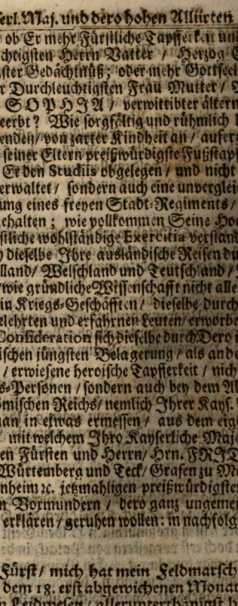 erl. Maj. und dero hohen Alliirten
ob Er mehr Fürstliche Tapfferkeit un
chtigsten Herrn Vatter / Herzog E
ster Gedächtnüß; oder mehr Gottseel
r Durchleuchtigsten Frau Mutter /
SOPHIA, verwittibter ältern
eerbt? Wie sorgfältig und rühmlich
enden / von zarter Kindheit an / aufer
seiner Eltern preißwürdigste Fußstap
Er den Studiis obgelegen / und nicht
erwaltet / sondern auch eine unverglei
ung eines freyen Stadt-Regiments /
ehalten; wie vollkommen Seine Ho
stliche wohlständige Exercitia verstan
h dieselbe Ihre ausländische Reisen du
lland / Welschland und Teutschland /
/ wie gründliche Wissenschafft nicht alle
in Kriegs-Geschäfften / dieselbe durch
elehrten und erfahrnen Leuten / erworbe
Consideration sich dieselbe durch Dero i
ischen jüngsten Belagerung / als ande
/ erwiesene heroische Tapfferkeit / nich
s-Personen / sondern auch bey dem Al
ömischen Reichs / nemlich Ihrer Kays.
an in etwas ermessen / aus dem eige
mit welchem Ihro Kayserliche Maje
en Fürsten und Herrn / Hrn. FRID
Würtemberg und Teck / Grafen zu M
nheim ꝛc. jetzmahligen preißwürdigste
n Vormundern / dero ganz ungemei
erklären / geruhen wollen: in nachfolg
Fürst / mich hat mein Feldmarsch
dem 18. erst abgewichenen Monat